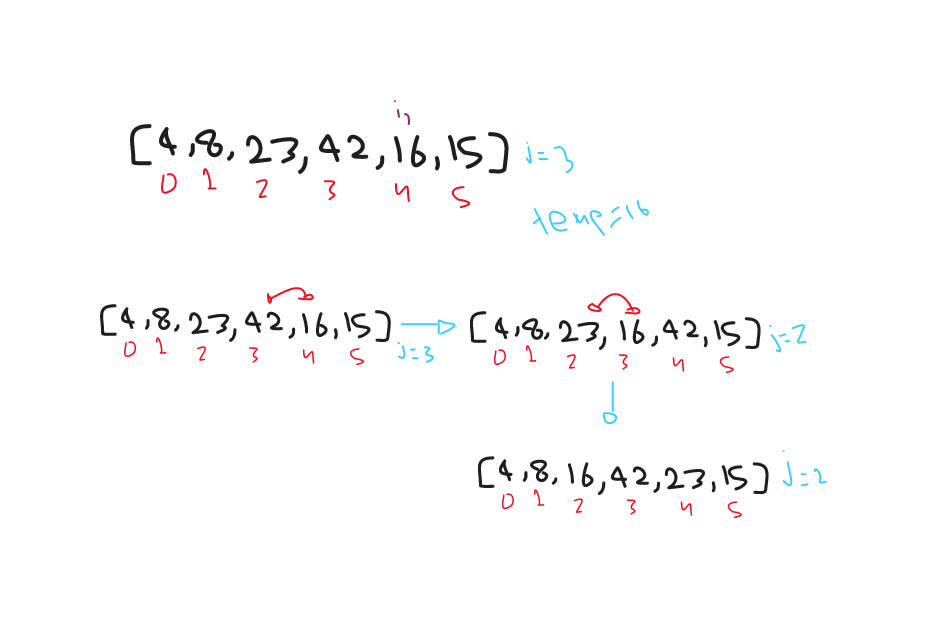 i,
[4,8,23,42,16,15] j=3
0 1 2 3 4 5
temp=16
[4,8,23,42,16,15] j=3
0 1 2 3 4 5
[4,8,23,16,42,15] j=2
0 1 2 3 4 5
[4,8,16,42,23,15] j=2
0 1 2 3 4 5